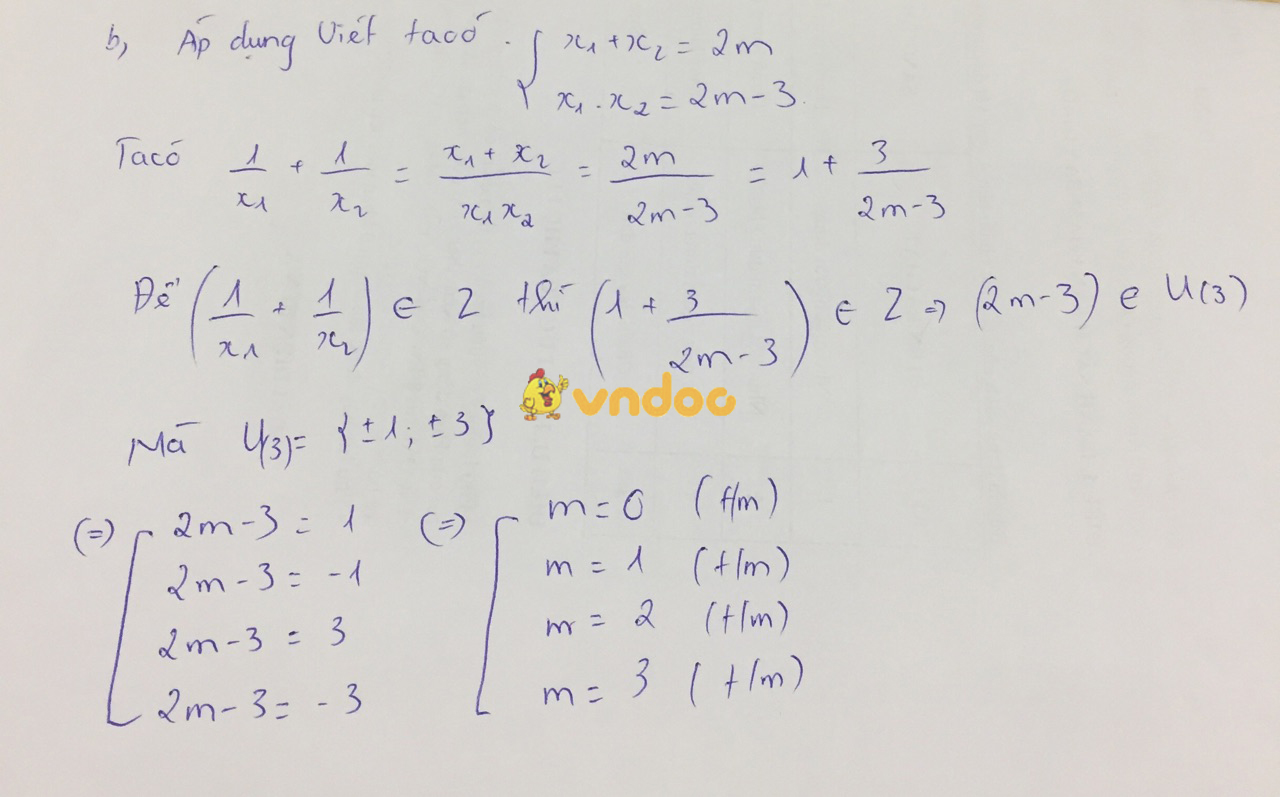 b, Áp dụng Viét ta có. { x₁ + x₂ = 2m
x₁ . x₂ = 2m - 3.
Ta có 1/x₁ + 1/x₂ = (x₁ + x₂)/(x₁x₂) = 2m/(2m-3) = 1 + 3/(2m-3)
Để (1/x₁ + 1/x₂) ∈ Z thì (1 + 3/(2m-3)) ∈ Z ⇒ (2m-3) ∈ Ư(3)
vndoc
Mà Ư(3) = {±1; ±3}
(=) [ 2m-3 = 1 (=) [ m = 0 (t/m)
2m-3 = -1 m = 1 (t/m)
2m-3 = 3 m = 2 (t/m)
2m-3 = -3 m = 3 (t/m)